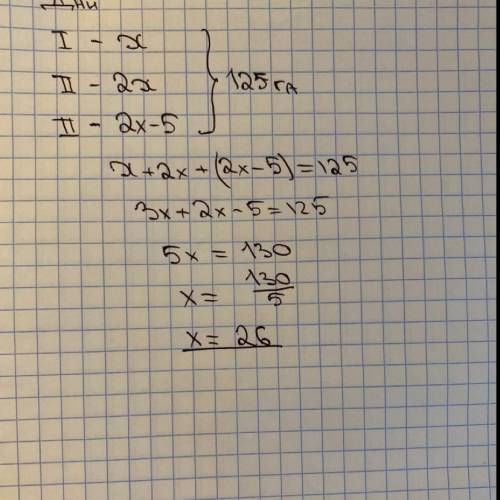 Дни
I - x
II - 2x
II - 2x-5
125 га
x+2x+(2x-5)=125
3x+2x-5=125
5x = 130
x= 130/5
x= 26